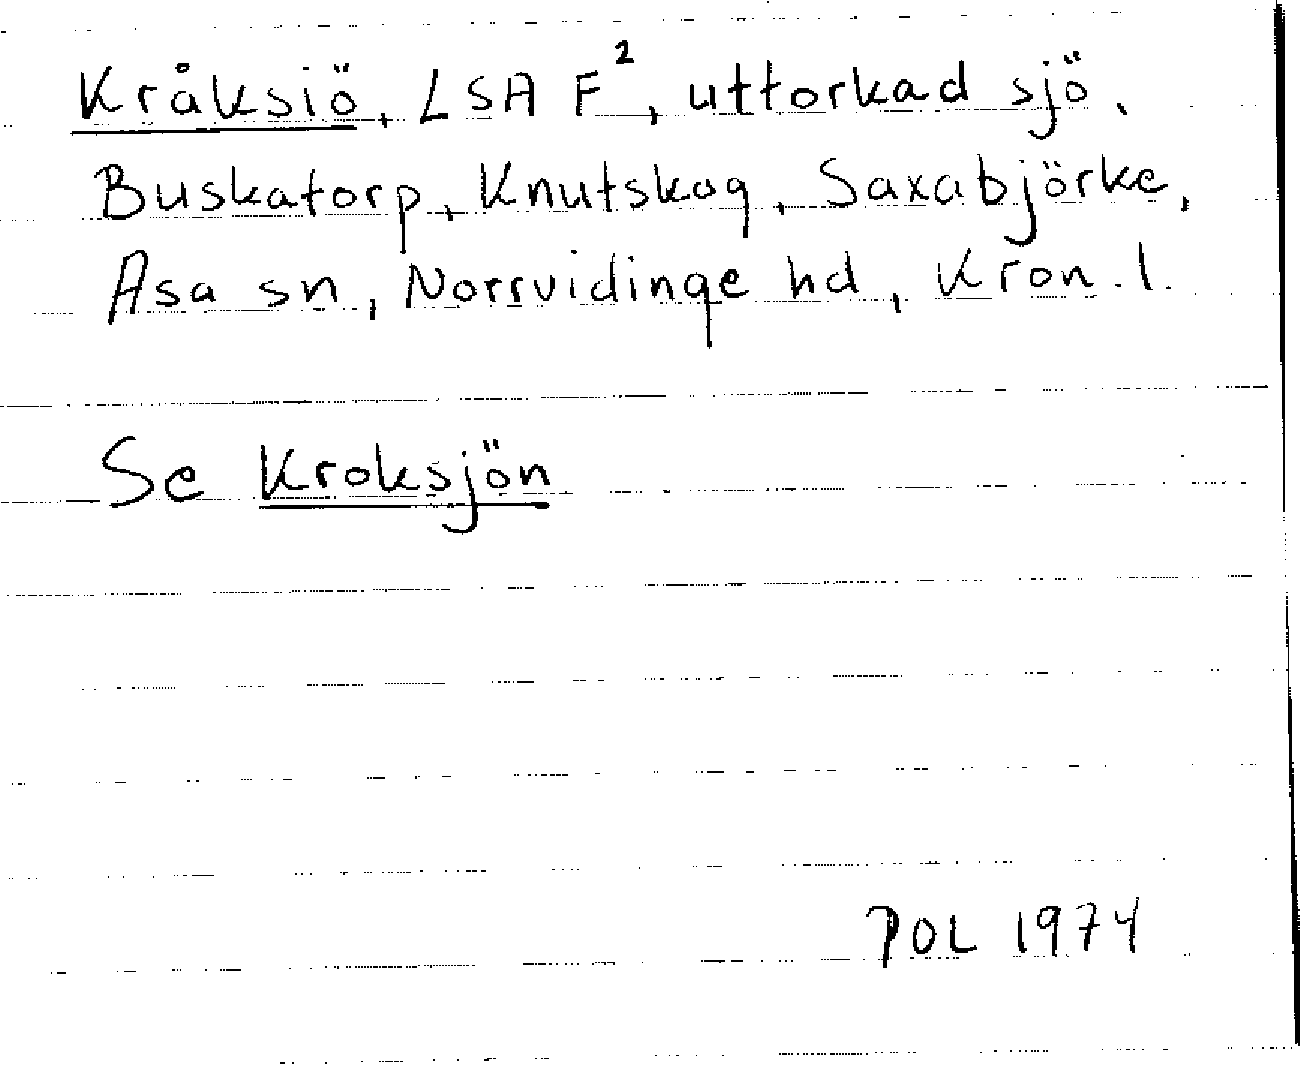 Kråksiö, LSA F², uttorkad sjö,
Buskatorp, Knutskog, Saxabjörke,
Asa sn, Norrvidinge hd, Kron. l.
Se Kroksjön
POL 1974